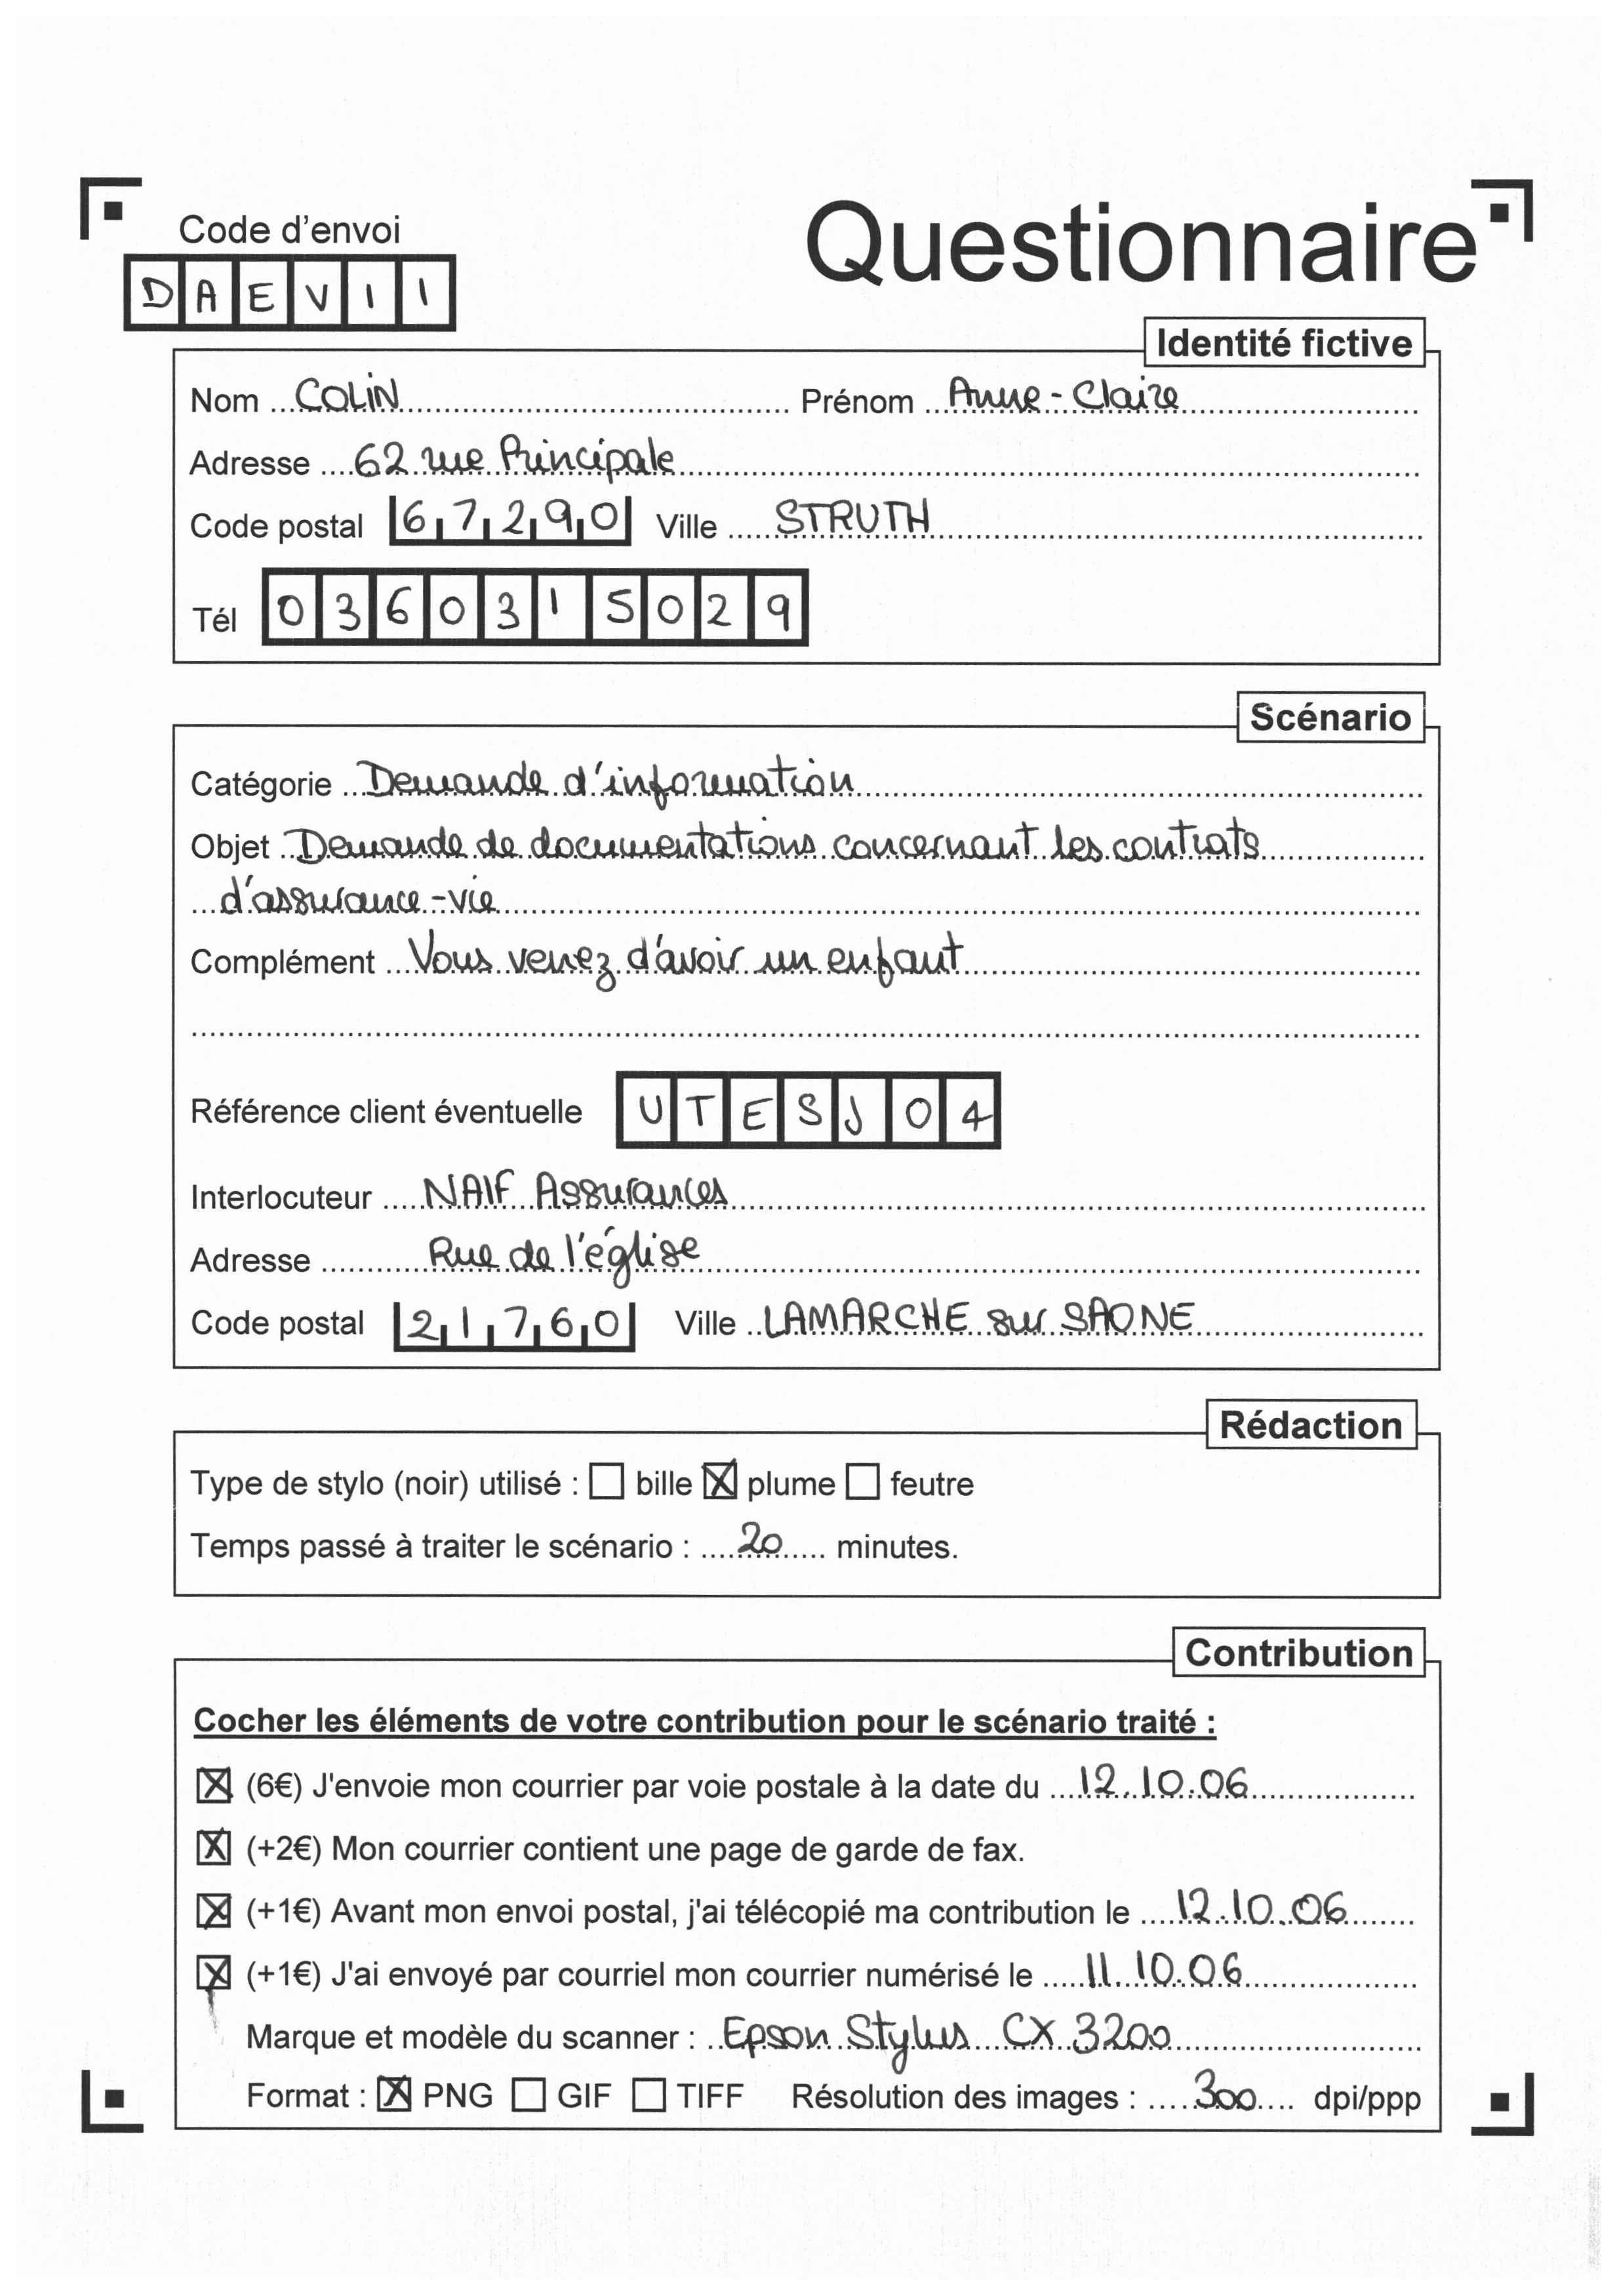 Code d'envoi
Questionnaire
DAEV11
Identité fictive
Nom COLIN Prénom Anne-Claire
Adresse 62 rue Principale
Code postal 67290 Ville STRUTH
Tél 0360315029
Scénario
Catégorie Demande d'information
Objet Demande de documentations concernant les contrats
d'assurance-vie
Complément Vous venez d'avoir un enfant
Référence client éventuelle UTESJ04
Interlocuteur NAIF Assurances
Adresse Rue de l'église
Code postal 21760 Ville LAMARCHE sur SAONE
Rédaction
Type de stylo (noir) utilisé : ☐ bille ☒ plume ☐ feutre
Temps passé à traiter le scénario : 20 minutes.
Contribution
Cocher les éléments de votre contribution pour le scénario traité :
☒ (6€) J'envoie mon courrier par voie postale à la date du 12.10.06
☒ (+2€) Mon courrier contient une page de garde de fax.
☒ (+1€) Avant mon envoi postal, j'ai télécopié ma contribution le 12.10.06
☒ (+1€) J'ai envoyé par courriel mon courrier numérisé le 11.10.06
Marque et modèle du scanner : Epson Stylus CX 3200
Format : ☒ PNG ☐ GIF ☐ TIFF Résolution des images : 300 dpi/ppp